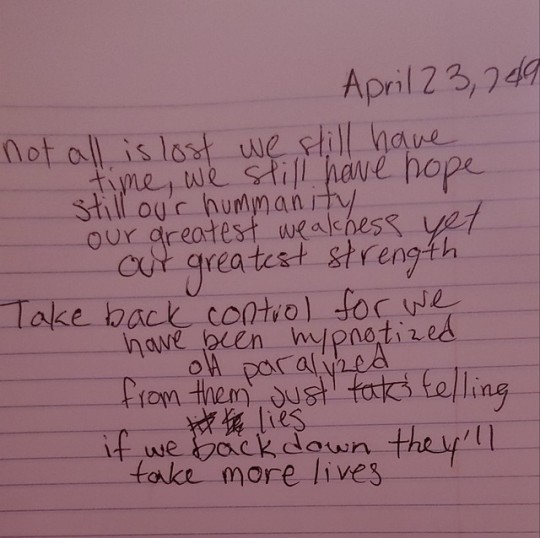 April 23, 749
not all is lost we still have
time, we still have hope
still our hummanity
our greatest weakness yet
our greatest strength
Take back control for we
have been hypnotized
oh paralyzed
from them just telling
lies
if we back down they'll
take more lives